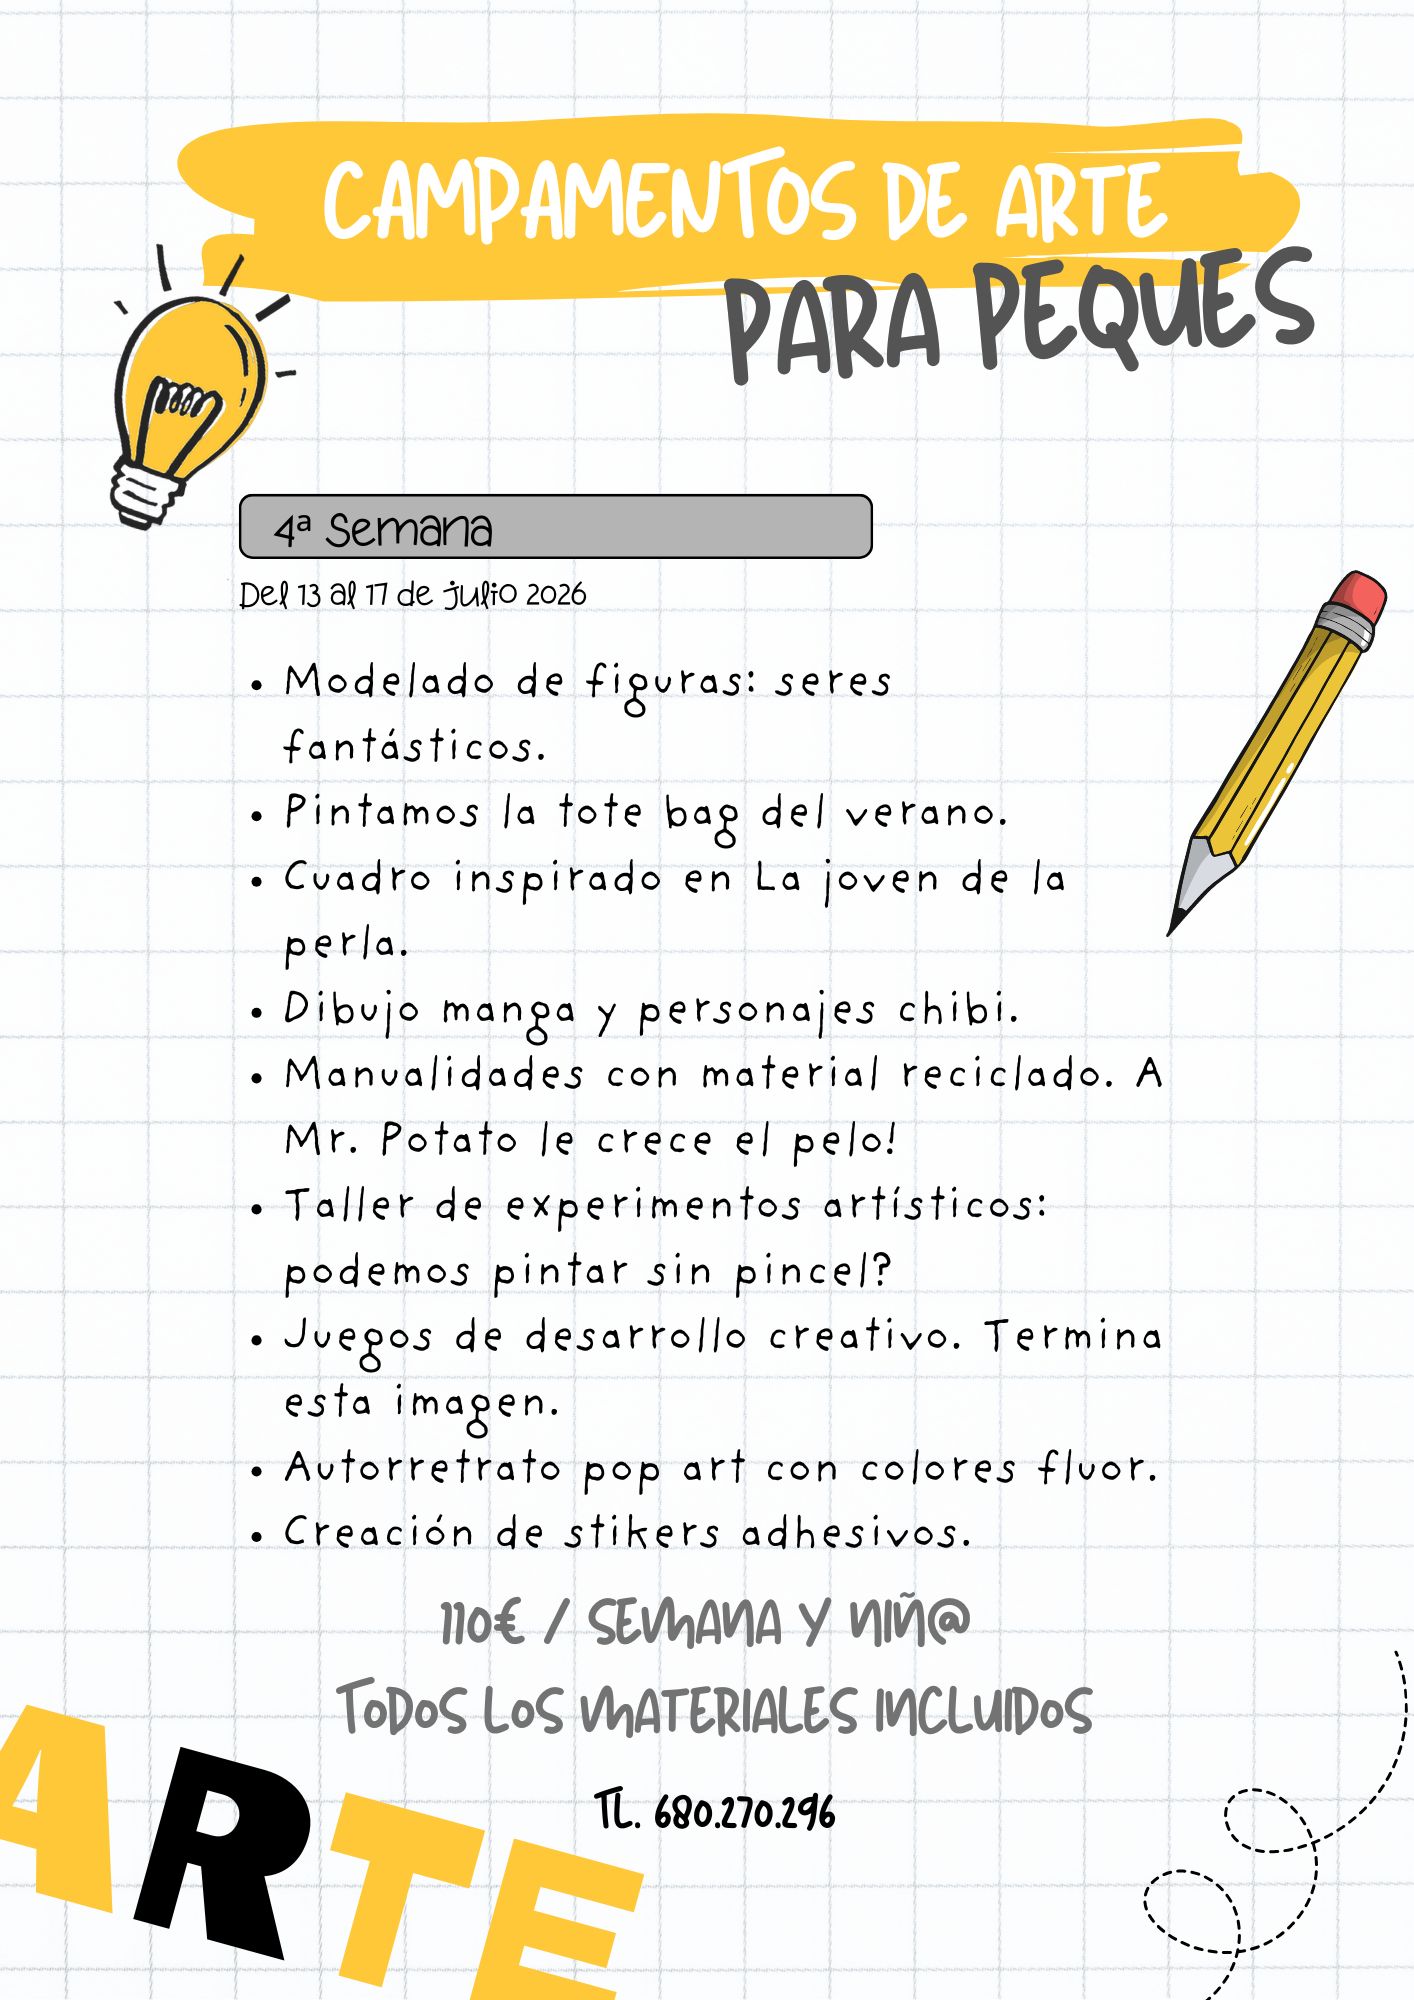 CAMPAMENTOS DE ARTE
PARA PEQUES
4ª Semana
Del 13 al 17 de julio 2026
• Modelado de figuras: seres
fantásticos.
• Pintamos la tote bag del verano.
• Cuadro inspirado en La joven de la
perla.
• Dibujo manga y personajes chibi.
• Manualidades con material reciclado. A
Mr. Potato le crece el pelo!
• Taller de experimentos artísticos:
podemos pintar sin pincel?
• Juegos de desarrollo creativo. Termina
esta imagen.
• Autorretrato pop art con colores fluor.
• Creación de stikers adhesivos.
110€ / SEMANA Y NIÑ@
TODOS LOS MATERIALES INCLUIDOS
TL. 680.270.296
ARTE